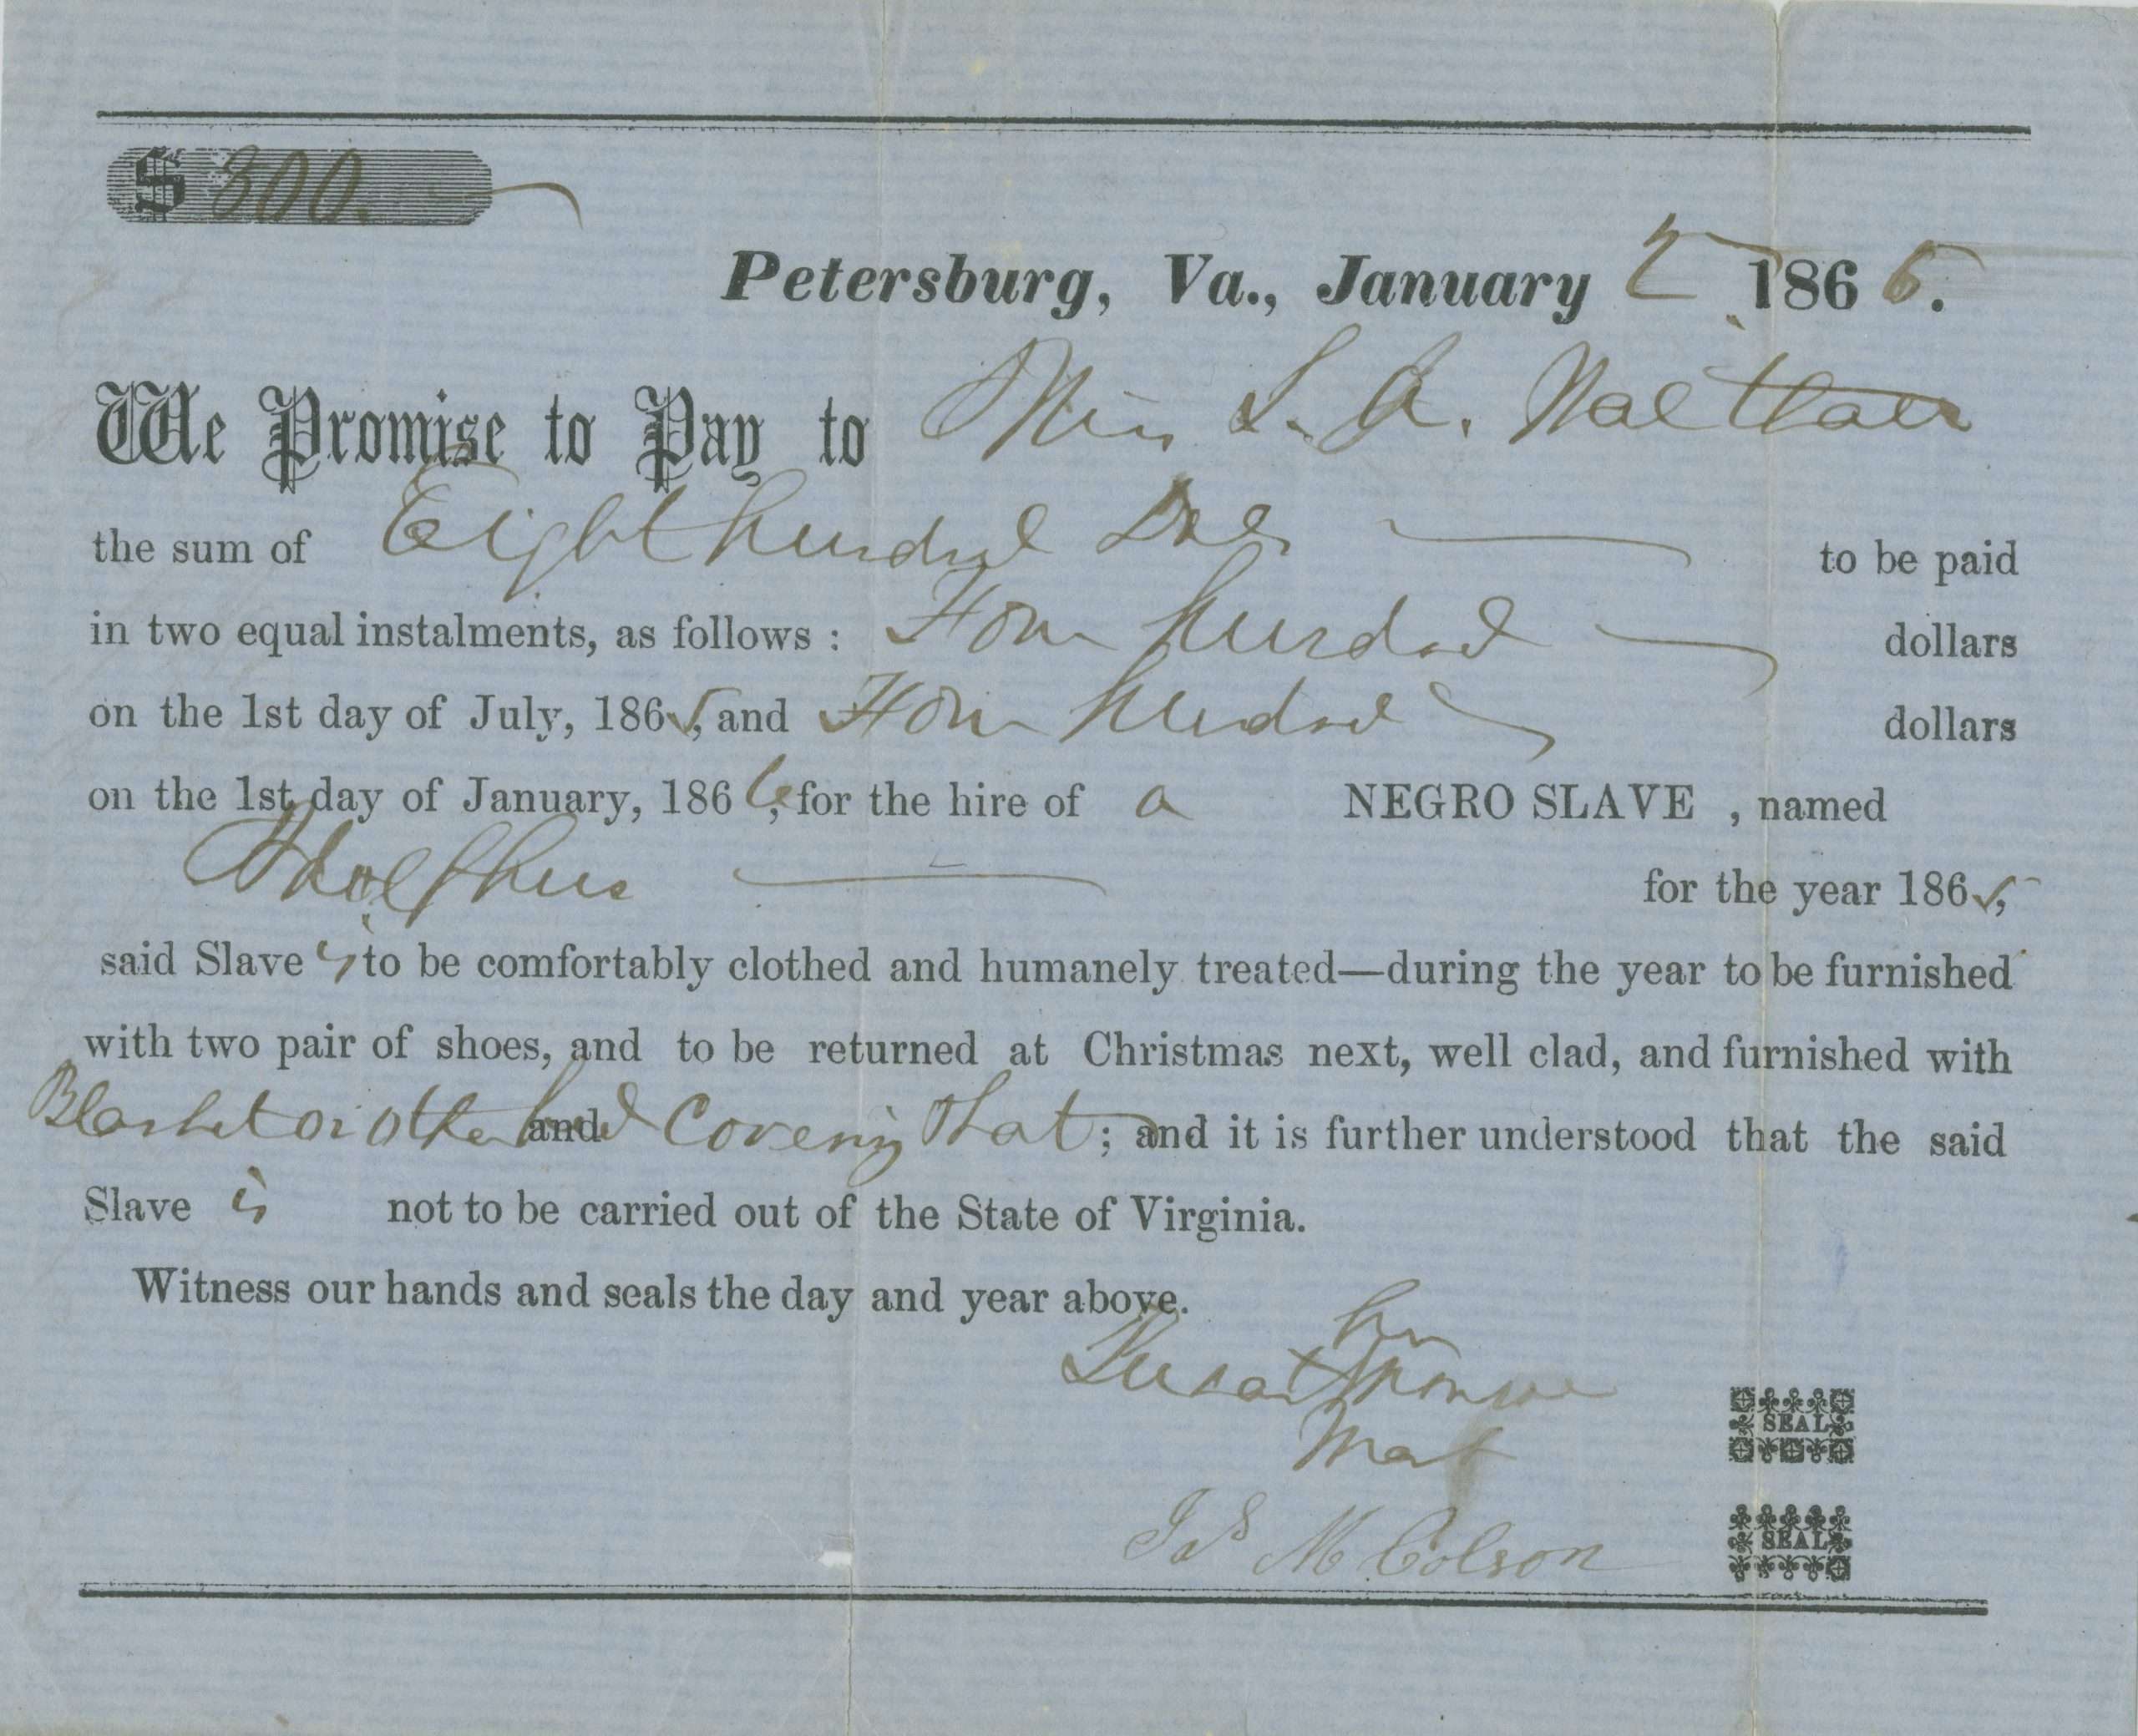 $ 800.
Petersburg, Va., January 2 1865.
We Promise to Pay to Miss S. A. Walthall
the sum of Eight hundred Dols to be paid
in two equal instalments, as follows: Four hundred dollars
on the 1st day of July, 1865, and Four hundred dollars
on the 1st day of January, 1866, for the hire of a NEGRO SLAVE , named
for the year 1865,
said Slave is to be comfortably clothed and humanely treated—during the year to be furnished
with two pair of shoes, and to be returned at Christmas next, well clad, and furnished with
Blanket or other bed and Covering Hat; and it is further understood that the said
Slave is not to be carried out of the State of Virginia.
Witness our hands and seals the day and year above.
his
X
Mark
SEAL
Jas M Colson
SEAL